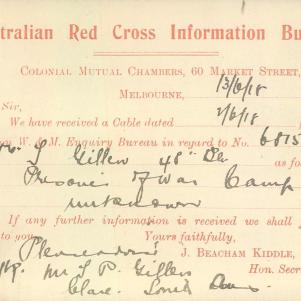 tralian Red Cross Information Bu
Colonial Mutual Chambers, 60 Market Street,
Melbourne, 13/6/18
Sir,
We have received a Cable dated 7/6/18
W. & M. Enquiry Bureau in regard to No. 6815
Gillen 48th as fo
Prisoner of War Camp
unknown
If any further information is received we shall
to you. Yours faithfully,
J. Beacham Kiddle,
Hon. Secr
Mr P. Gillen
Clare South Aus